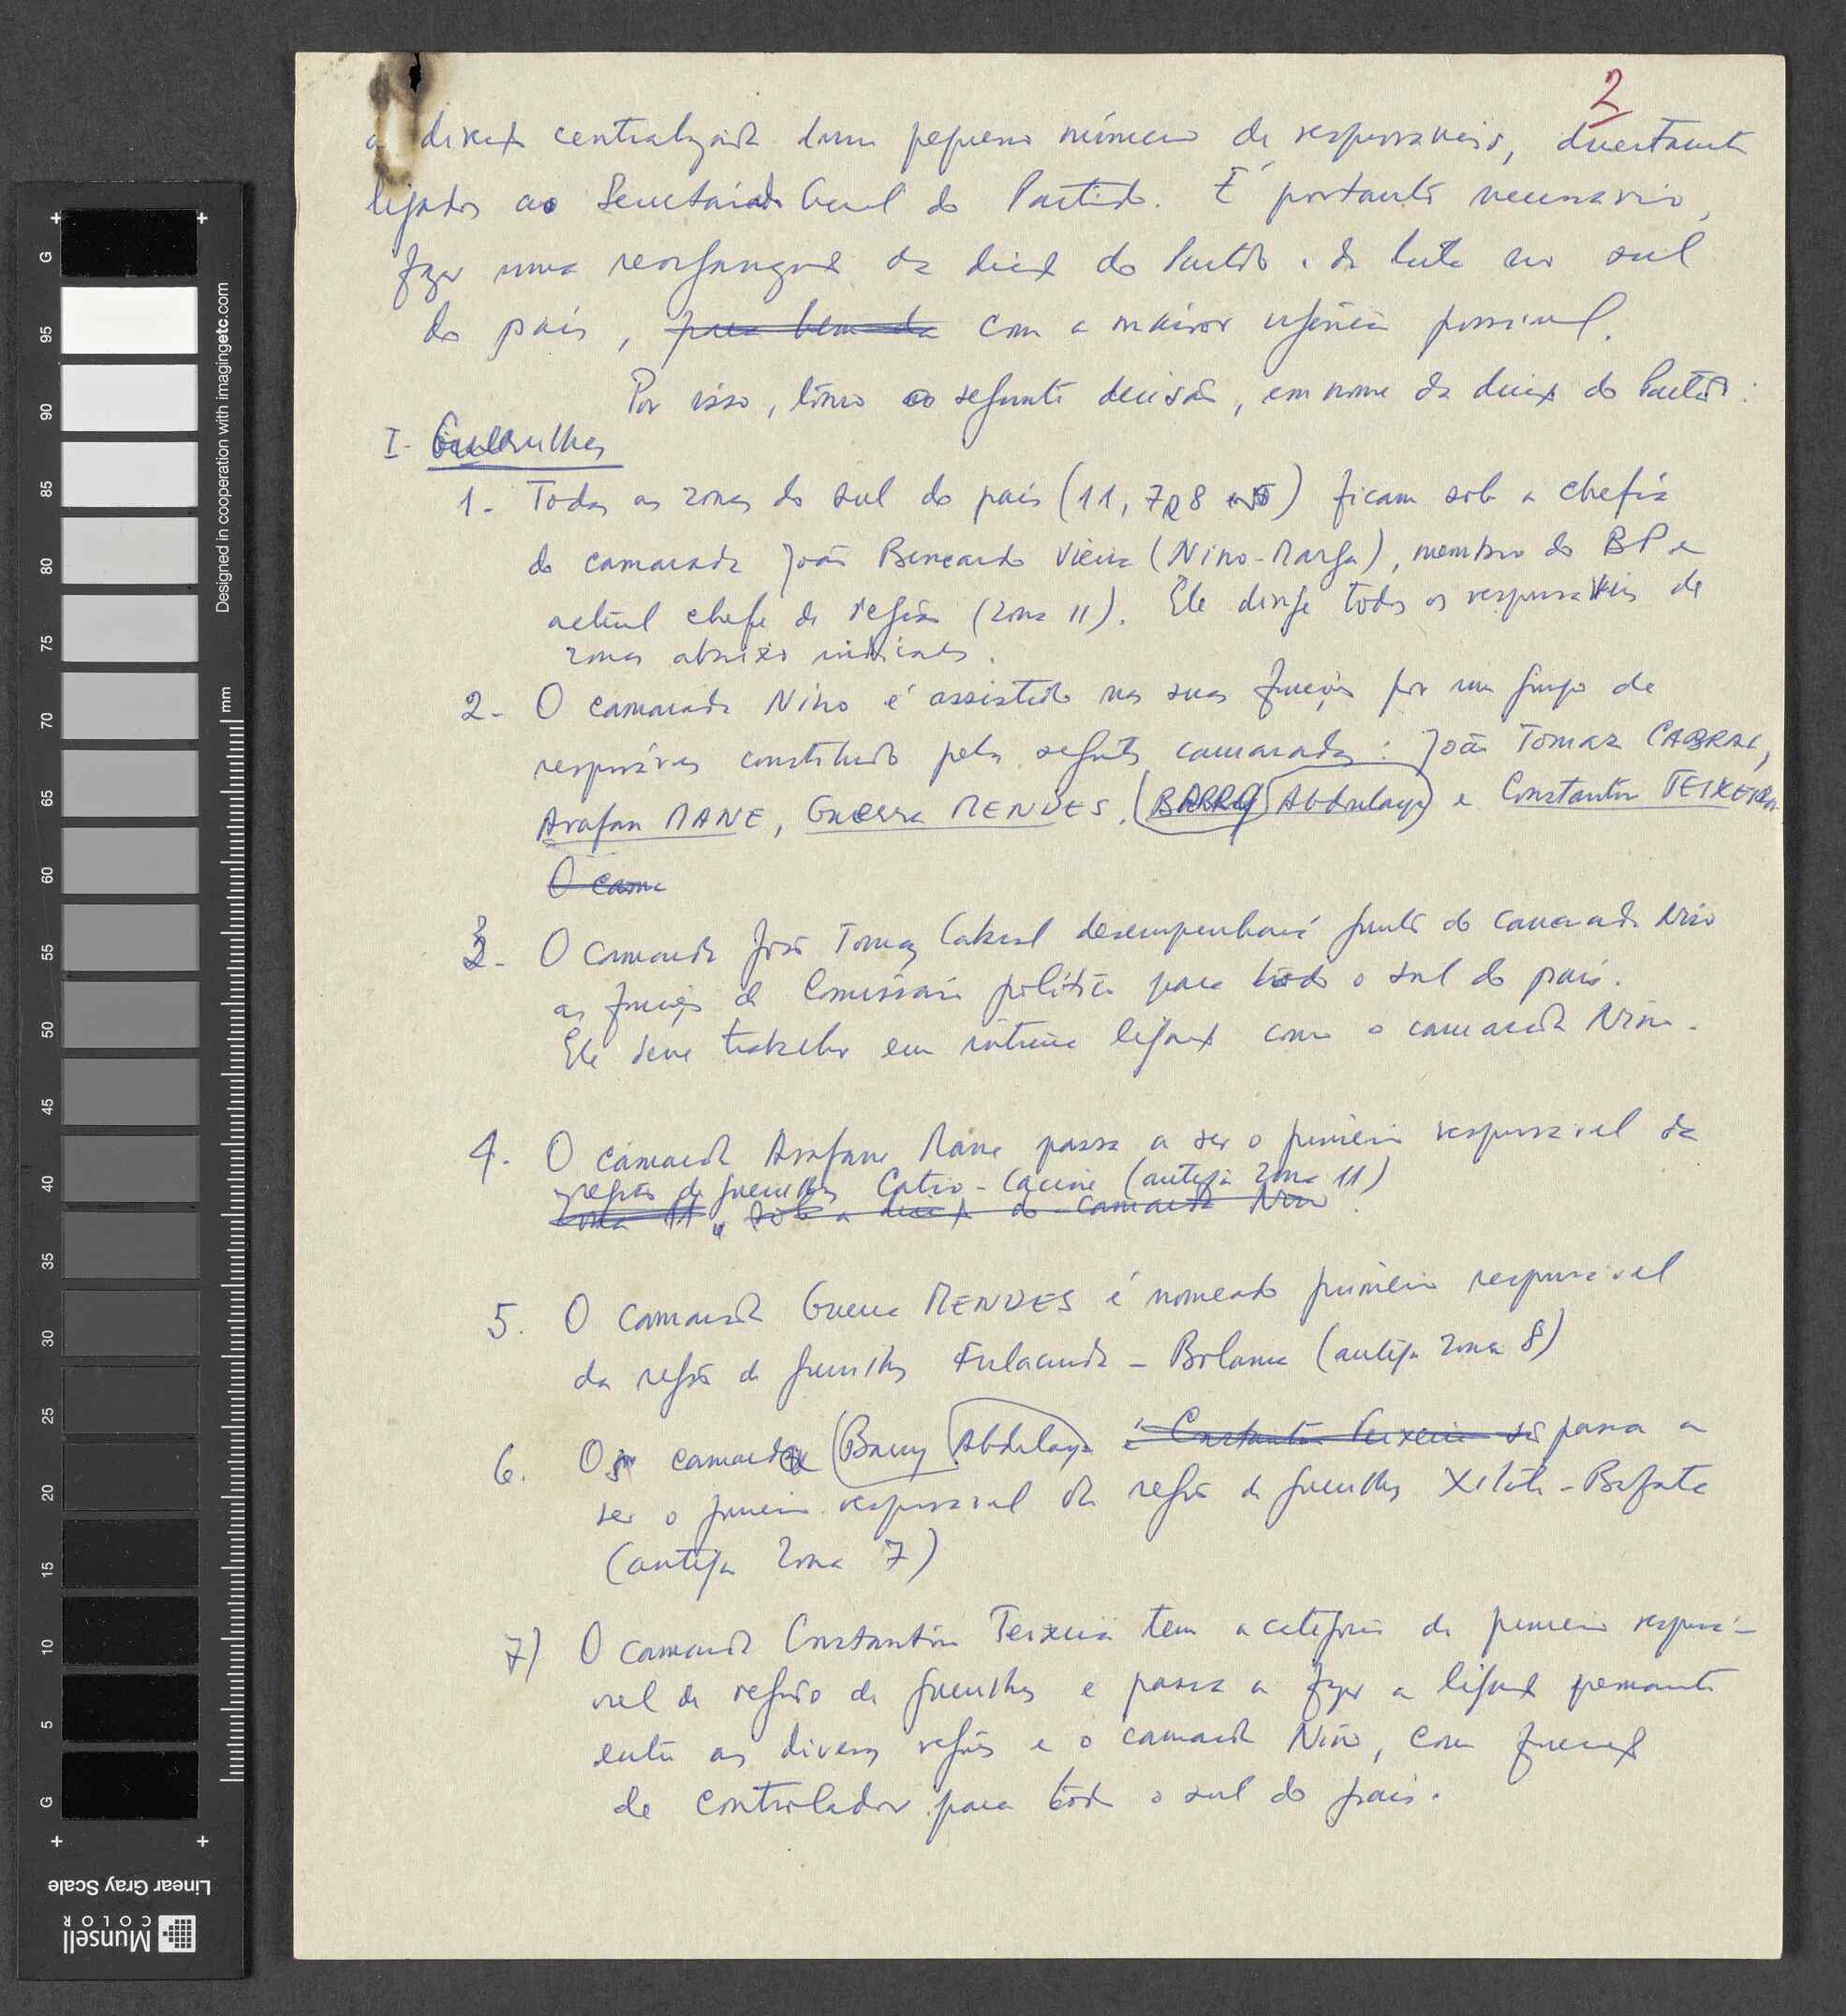 2
a direcç centralizada dum pequeno número de responsáveis, directamente
ligados ao Secretariado Geral do Partido. É portanto necessário,
fazer uma reorganizaç da direcç do Partido e da luta no sul
do país, para bem da com a maior urgência possivel.
Por isso, tomo a seguinte decisão, em nome da direcç do Partido:
I- Guerrilhas
1. Todas as zonas do sul do país (11, 7 e 8) ficam sob a chefia
do camarada João Bernardo Vieira (Nino-Marga), membro do BP e
actual chefe de região (zona 11). Ele dirige todos os responsáveis de
zonas abaixo indicados.
2- O camarada Nino é assistido nas suas funções por um grupo de
responsáveis constituido pelos seguintes camaradas: João Tomaz CABRAL,
Arafan MANE, Guerra MENDES, (BARRY Abdulaye) e Constantin TEIXEIRA
O cama
3- O camarada João Tomaz Cabral desempenhará junto do camarada Nino
as funções de Comissário político para todo o sul do país.
Ele deve trabalhar em íntima ligaç com o camarada Nino.
4. O camarada Arafane Mane passa a ser o primeiro responsavel da
região de guerrilhas Catio-Cacine (antiga zona 11)
zona 11, sob a direcç do camarada Nino.
5. O camarada Guerra MENDES é nomeado primeiro responsavel
da região de guerrilhas Fulacunda - Bolama (antiga zona 8)
6. O camarada (Barry Abdulaye) e Constantin Teixeira são passa a
ser o primeiro responsavel da região de guerrilhas Xitole-Bafata
(antiga zona 7)
7) O camarada Constantin Teixeira tem a categoria de primeiro responsá-
vel de região de guerrilhas e passa a fazer a ligaç permanente
entre as diversas regiões e o camarada Nino, com funcç
de controlador para todo o sul do país.
Designed in cooperation with imagingetc.com
mm
G
95
90
85
80
75
70
65
60
55
50
45
40
35
30
25
20
15
10
5
G
Linear Gray Scale
Munsell
COLOR